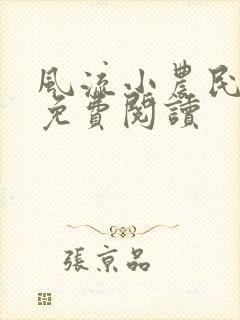 風流小農民
免費閱讀
張京品